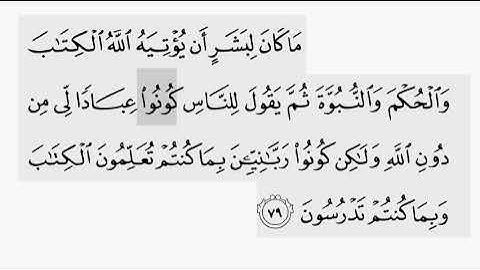 مَا كَانَ لِبَشَرٍ أَن يُؤْتِيَهُ اللَّهُ الْكِتَابَ
وَالْحُكْمَ وَالنُّبُوَّةَ ثُمَّ يَقُولَ لِلنَّاسِ كُونُوا عِبَادًا لِّي مِن
دُونِ اللَّهِ وَلَٰكِن كُونُوا رَبَّانِيِّينَ بِمَا كُنتُمْ تُعَلِّمُونَ الْكِتَابَ
وَبِمَا كُنتُمْ تَدْرُسُونَ ٧٩